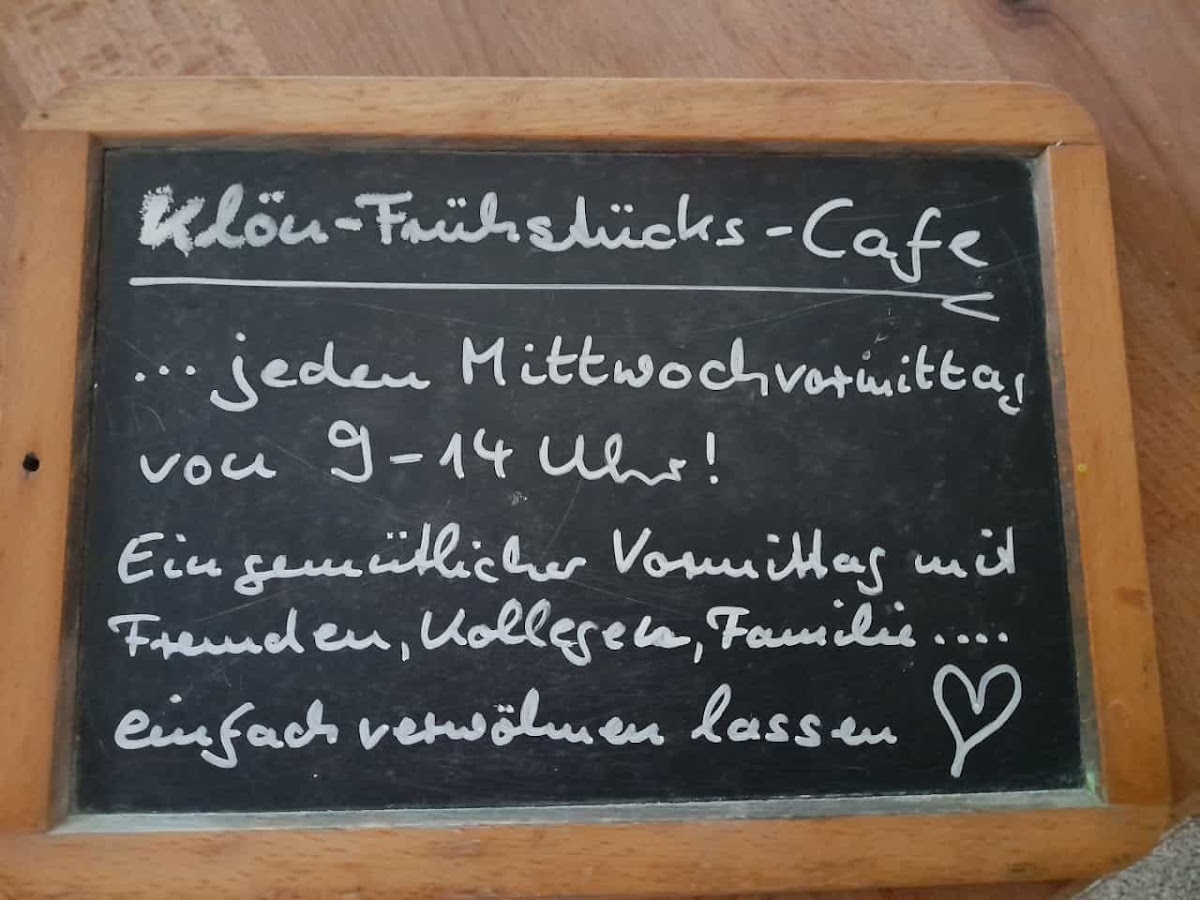 Klön-Frühstücks-Cafe
... jeden Mittwochvormittag
von 9-14 Uhr!
Ein gemütlicher Vormittag mit
Freunden, Kollegen, Familie ....
einfach verwöhnen lassen